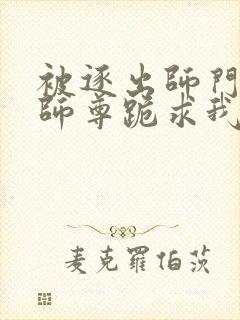 被逐出師門
師尊跪求我
麦克羅伯茨